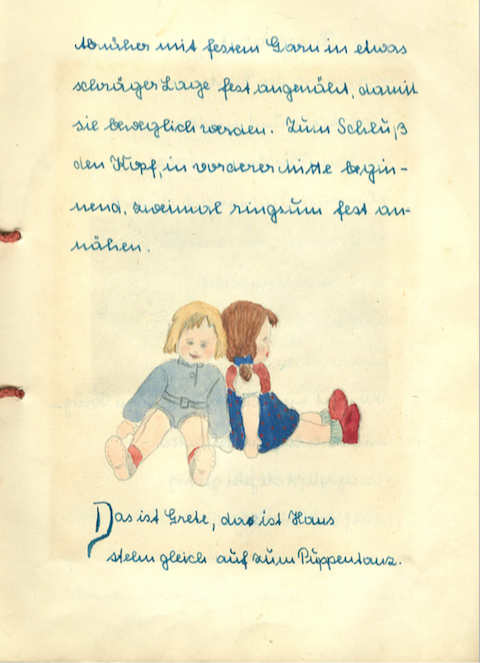 Abnäher mit festem Garn in etwas
schräger Lage fest angenäht, damit
sie beweglich werden. Zum Schluß
den Kopf, in vorderer Mitte begin-
nend, zweimal ringsum fest an-
nähen.
Das ist Grete, das ist Hans
stehn gleich auf zum Puppentanz.